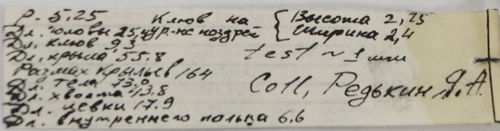 Р. 5,25
Клюв на ур-не ноздрей { Высота 2,25
Ширина 2,4
Дл. головы 25,
Дл. клюв 9,3
Дл. крыла 55.8
Размах крыльев 164
Дл. тела 13,0
Дл. хвоста 43.8
Дл. цевки 17.9
Дл. внутреннего пальца 6.6
test ~ 1 мм
Coll, Редькин Я.А.